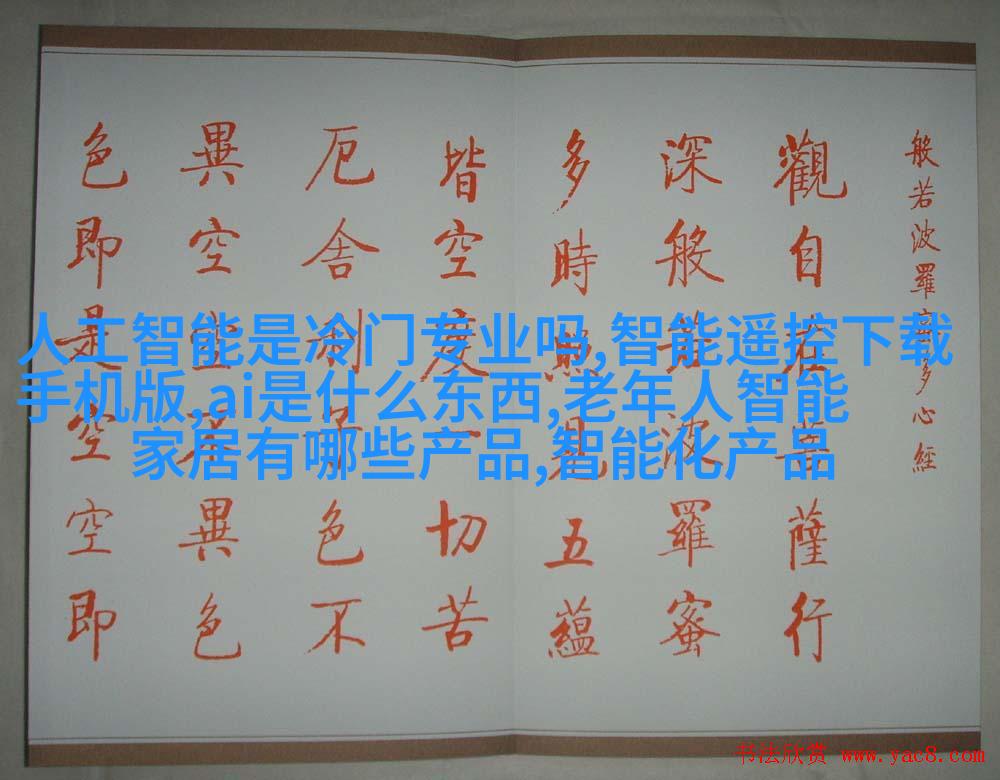 般若波羅蜜多心經
觀自在菩薩行
深般若波羅蜜
多時照見五蘊
皆空度一切苦
厄舍利子色不
異空空不異色
色即是空空即
人工智能是冷门专业吗,智能遥控下载
手机版,ai是什么东西,老年人智能
家居有哪些产品,智能化产品
书法欣赏 www.yac8.com